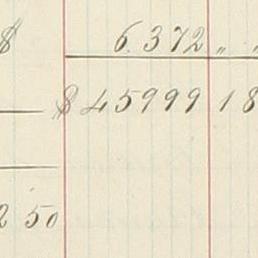 $ 6.372 " "
$ 45999 18
2 50